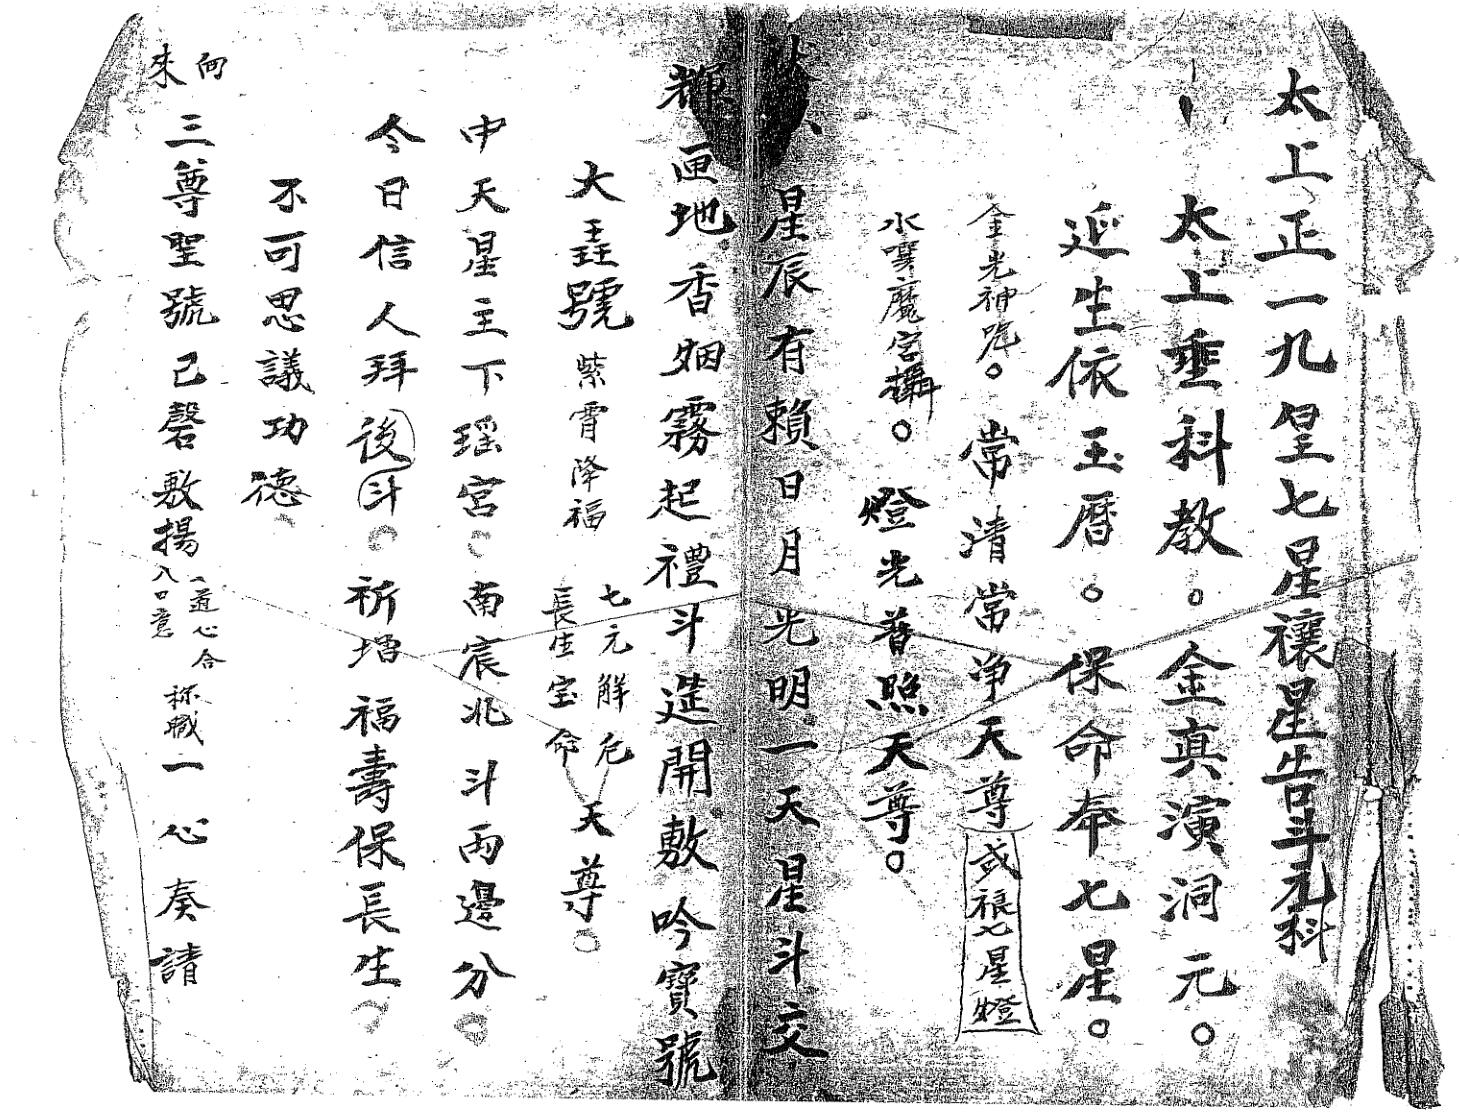 太上正一九皇七星禳星告斗元科
太上垂科教。金真演洞元。
延生依玉曆。。保命奉七星。
金光神咒。常清常净天尊 或禳七星燈
水噀魔宮攝。燈光普照天尊。
星辰有賴日月光明一天星斗交
輝匝地香烟霧起禮斗筵開敷吟寶號
大聖號 紫霄降福 七元解厄 長生宝命 天尊。
中天星主下瑶宮。南宸北斗兩邊分。
今日信人拜後斗。祈增福壽保長生。
不可思議功德
向來三尊聖號已磬敷揚 道心合 八口意 称職一心奏請